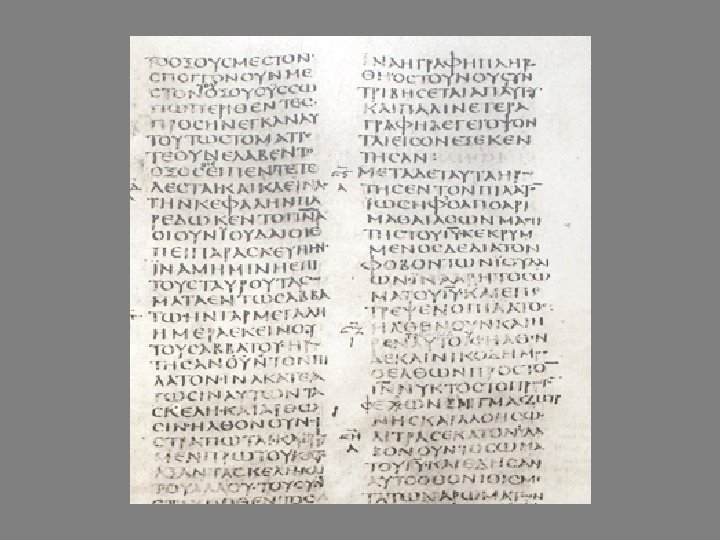 ΤΟΟΞΟΥϹΜΕϹΤΟΝ·
ϹΠΟΓΓΟΝΟΥΝΜΕ
ϹΤΟΝΟΞΟΥϹΫϹϹΩ
ΠΩΠΕΡΙΘΕΝΤΕϹ·
ΠΡΟϹΗΝΕΓΚΑΝΑΥ
ΤΟΥΤΩϹΤΟΜΑΤΙ
ΤΕΟΥΝΕΛΑΒΕΝΤ
ΟΞΟϹΕΙΠΕΝΤΕΤΕ
ΛΕϹΤΑΙΚΑΙΚΛΕΙΝΑ
ΤΗΝΚΕΦΑΛΗΝΠΑ
ΡΕΔΩΚΕΝΤΟΠΝΑ
ΟΙΟΥΝΙΟΥΔΑΙΟΙΕ
ΠΕΙΠΑΡΑϹΚΕΥΗΗΝ·
ΪΝΑΜΗΜΙΝΗΕΠΙ
ΤΟΥϹΤΑΥΡΟΥΤΑϹ
ΜΑΤΑΕΝΤΩϹΑΒΒΑ
ΤΩ·ΗΝΓΑΡΜΕΓΑΛΗ
ΗΜΕΡΑΕΚΕΙΝΟΥ
ΤΟΥϹΑΒΒΑΤΟΥ·ΗΡ
ΤΗϹΑΝΟΥΝΤΟΝΠΙ
ΛΑΤΟΝ·ΙΝΑΚΑΤΕΑ
ΓΩϹΙΝΑΥΤΩΝΤΑ
ϹΚΕΛΗ·ΚΑΙΑΡΘΩ
ϹΙΝ·ΗΛΘΟΝΟΥΝΟΙ
ϹΤΡΑΤΙΩΤΑΙ·ΚΑΙΤΟΥ
ΜΕΝΠΡΩΤΟΥΚΑΤ
ΑΞΑΝΤΑϹΚΕΛΗΚΑΙ
ΤΟΥΑΛΛΟΥ·ΤΟΥϹΥ
ΪΝΑΗΓΡΑΦΗΠΛΗΡ
ΘΗ·ΟϹΤΟΥΝΟΥϹΥΝ
ΤΡΙΒΗϹΕΤΑΙΑΠΑΥΤΟΥ·
ΚΑΙΠΑΛΙΝΕΤΕΡΑ
ΓΡΑΦΗΛΕΓΕΙΟΨΟΝ
ΤΑΙΕΙϹΟΝΕΞΕΚΕΝ
ΤΗϹΑΝ:
ΜΕΤΑΔΕΤΑΥΤΑΗΡ
ΤΗϹΕΝΤΟΝΠΙΛΑΤ
ΪΩϹΗΦΟΑΠΟΑΡΙ
ΜΑΘΑΙΑϹΩΝΜΑΘΗ
ΤΗϹΤΟΥΙΥΚΕΚΡΥΜ
ΜΕΝΟϹΔΕΔΙΑΤΟΝ
ΦΟΒΟΝΤΩΝΪΟΥΔΑΙ
ΩΝ·ΪΝΑΑΡΗΤΟϹΩ
ΜΑΤΟΥΙΥΚΑΙΕΠΕ
ΤΡΕΨΕΝΟΠΙΛΑΤΟϹ·
ΗΛΘΟΝΟΥΝΚΑΙΗ
ΡΑΝΑΥΤΟΝ·ΗΛΘΕΝ
ΔΕΚΑΙΝΙΚΟΔΗΜ
ΟΕΛΘΩΝΠΡΟϹΤΟ
ΙΝΝΥΚΤΟϹΤΟΠΡ
ΜΗϹΚΑΙΑΛΟΗϹΩ
ΛΙΤΡΑϹΕΚΑΤΟΝ·ΕΛΑ
ΒΟΝΟΥΝΤΟϹΩΜΑ
ΤΟΥΙΥΚΑΙΕΔΗϹΑΝ
ΑΥΤΟΟΘΟΝΙΟΙϹΜ
ΤΑΤΩΝΑΡΩΜΑΤΩΝ